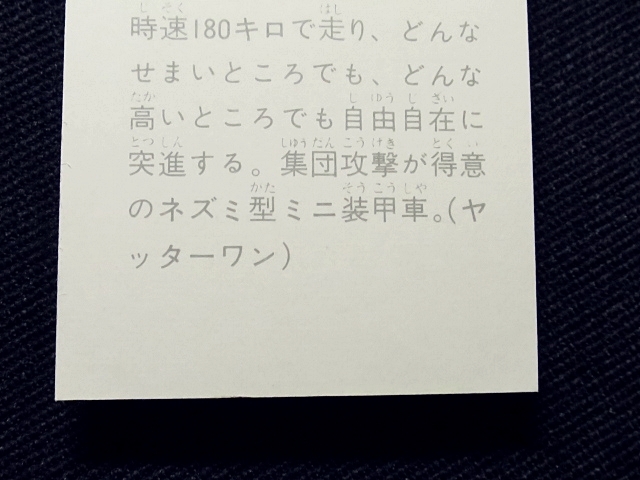 時速180キロで走り、どんな
せまいところでも、どんな
高いところでも自由自在に
突進する。集団攻撃が得意
のネズミ型ミニ装甲車。(ヤ
ッターワン)